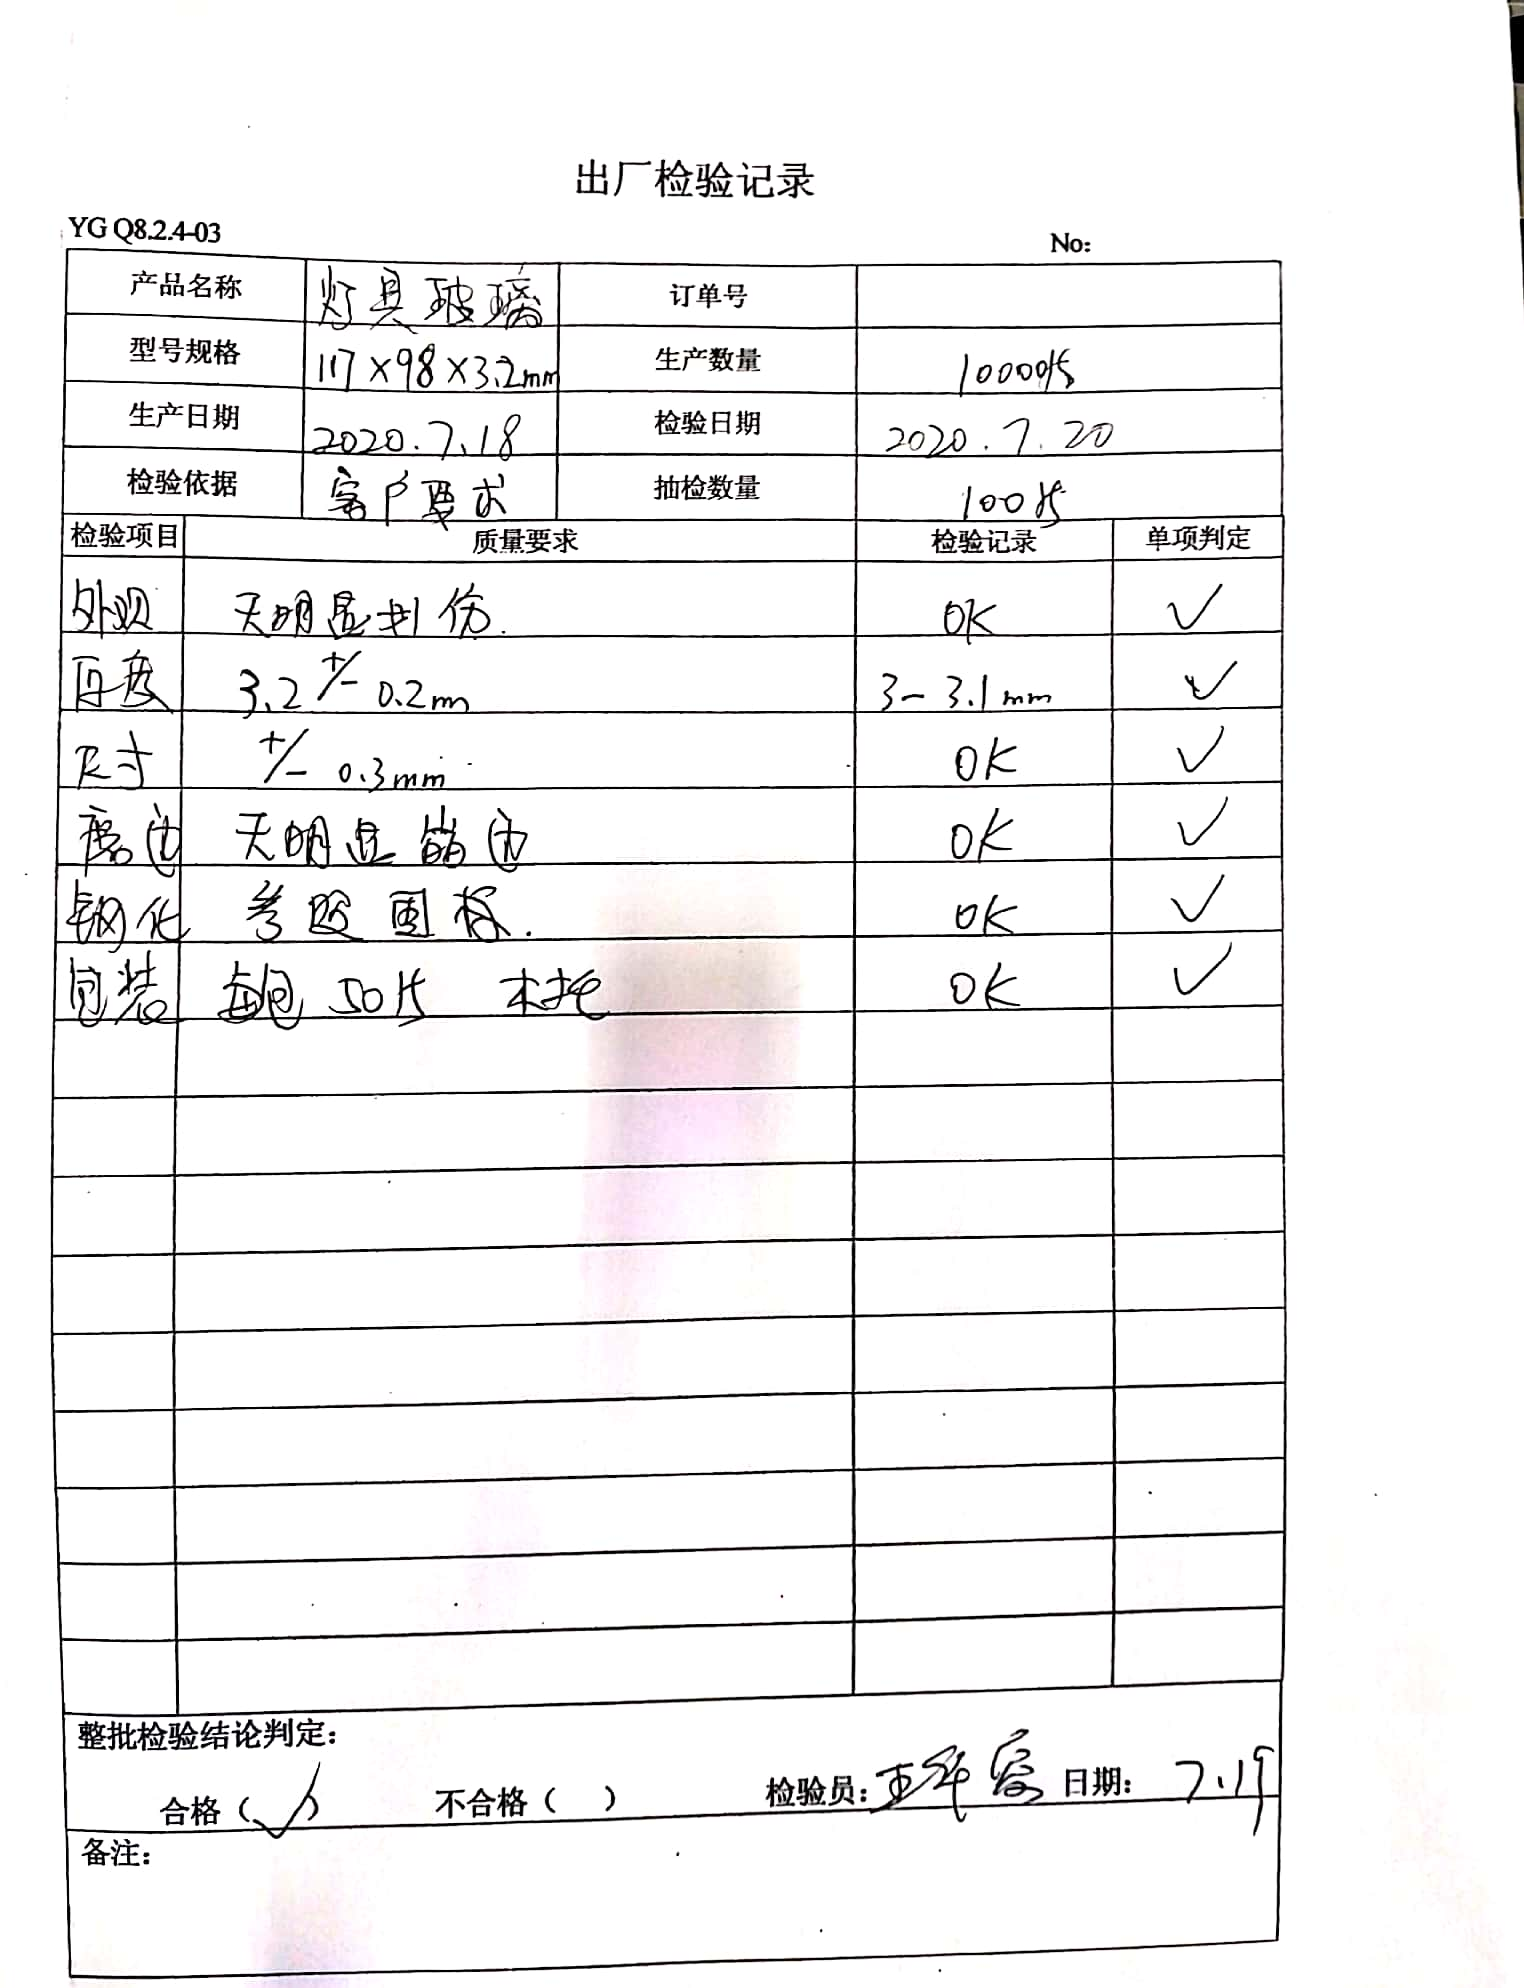 出厂检验记录
YG Q8.2.4-03 No:
产品名称 灯具玻璃 订单号
型号规格 117×98×3.2mm 生产数量 10000片
生产日期 2020.7.18 检验日期 2020.7.20
检验依据 客户要求 抽检数量 100片
检验项目 质量要求 检验记录 单项判定
外观 无明显划伤. OK ✓
厚度 3.2 +/- 0.2m 3-3.1mm ✓
尺寸 +/- 0.3mm OK ✓
磨边 无明显崩边 OK ✓
钢化 参照国标. OK ✓
包装 每包50片 木托 OK ✓
整批检验结论判定:
合格(✓) 不合格( ) 检验员: 王 日期: 7.19
备注: